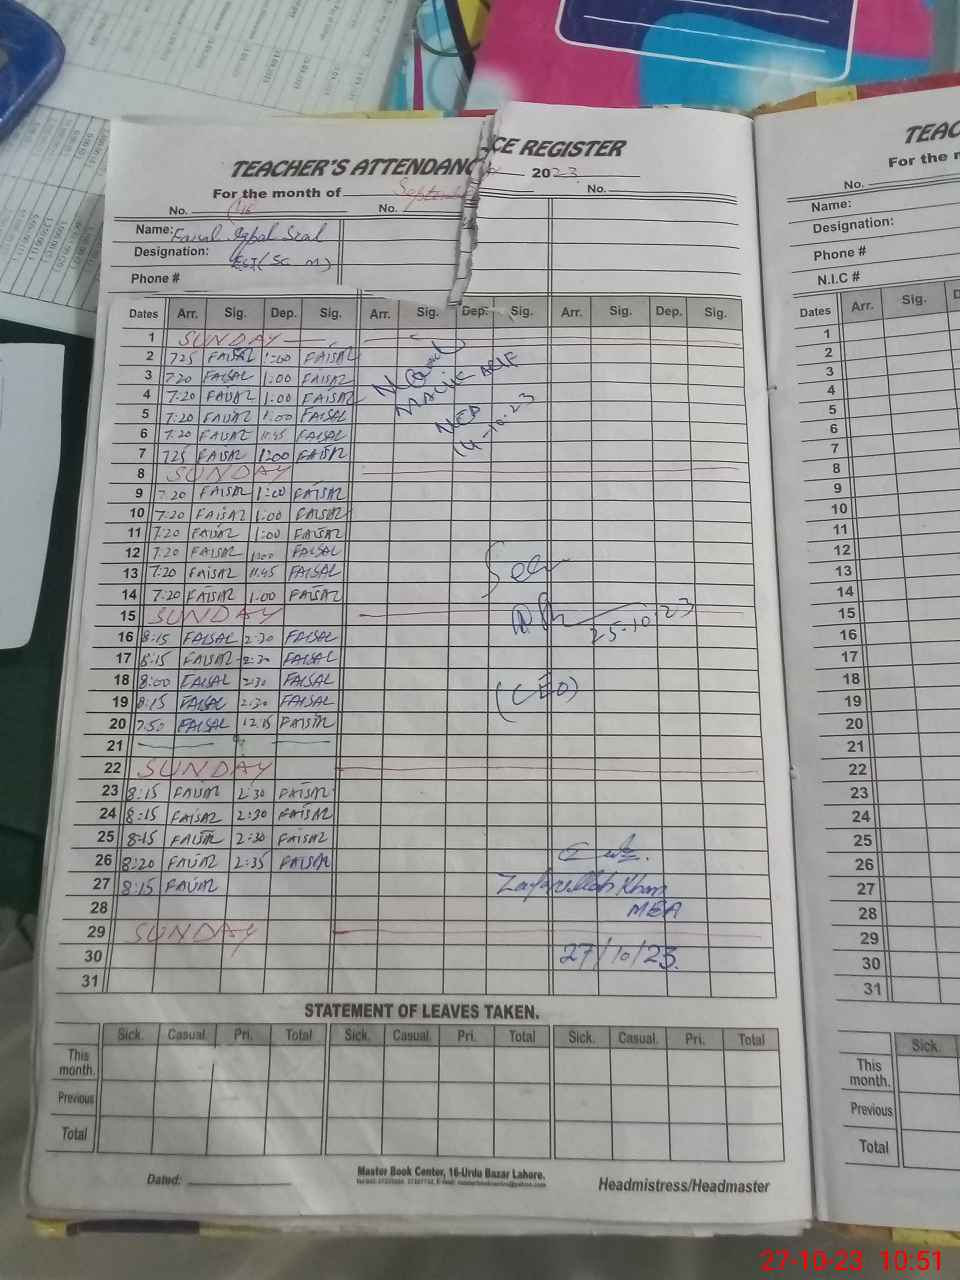 TEACHER'S ATTENDANCE REGISTER
For the month of 2023
No. No. No.
Name: Faisal Iqbal
Designation: EST (Sc. M)
Phone #
Dates Arr. Sig. Dep. Sig. Arr. Sig. Dep. Sig. Arr. Sig. Dep. Sig.
1 SUNDAY
2 7:25 FAISAL 1:00 FAISAL
3 7:20 FAISAL 1:00 FAISAL
4 7:20 FAISAL 1:00 FAISAL
5 7:20 FAISAL 1:00 FAISAL
6 7:20 FAISAL 11:45 FAISAL
7 7:25 FAISAL 1:00 FAISAL
8 SUNDAY
9 7:20 FAISAL 1:00 FAISAL
10 7:20 FAISAL 1:00 FAISAL
11 7:20 FAISAL 1:00 FAISAL
12 7:20 FAISAL 1:00 FAISAL
13 7:20 FAISAL 11:45 FAISAL
14 7:20 FAISAL 1:00 FAISAL
15 SUNDAY
16 8:15 FAISAL 2:30 FAISAL
17 8:15 FAISAL 2:30 FAISAL
18 8:00 FAISAL 2:30 FAISAL
19 8:15 FAISAL 2:30 FAISAL
20 7:50 FAISAL 12:15 FAISAL
21
22 SUNDAY
23 8:15 FAISAL 2:30 FAISAL
24 8:15 FAISAL 2:30 FAISAL
25 8:15 FAISAL 2:30 FAISAL
26 8:20 FAISAL 2:35 FAISAL
27 8:15 FAISAL
28
29 SUNDAY
30
31
MALIK ARIF
MEA
14-10-23
25-10-23
(CEO)
Zafarullah Khan
MEA
27/10/23.
STATEMENT OF LEAVES TAKEN.
Sick. Casual. Pri. Total Sick. Casual. Pri. Total Sick. Casual. Pri. Total
This month.
Previous
Total
Dated:
Master Book Center, 16-Urdu Bazar Lahore.
Headmistress/Headmaster
TEAC
For the m
No.
Name:
Designation:
Phone #
N.I.C #
Dates Arr. Sig. D
1
2
3
4
5
6
7
8
9
10
11
12
13
14
15
16
17
18
19
20
21
22
23
24
25
26
27
28
29
30
31
Sick.
This month.
Previous
Total
27-10-23 10:51